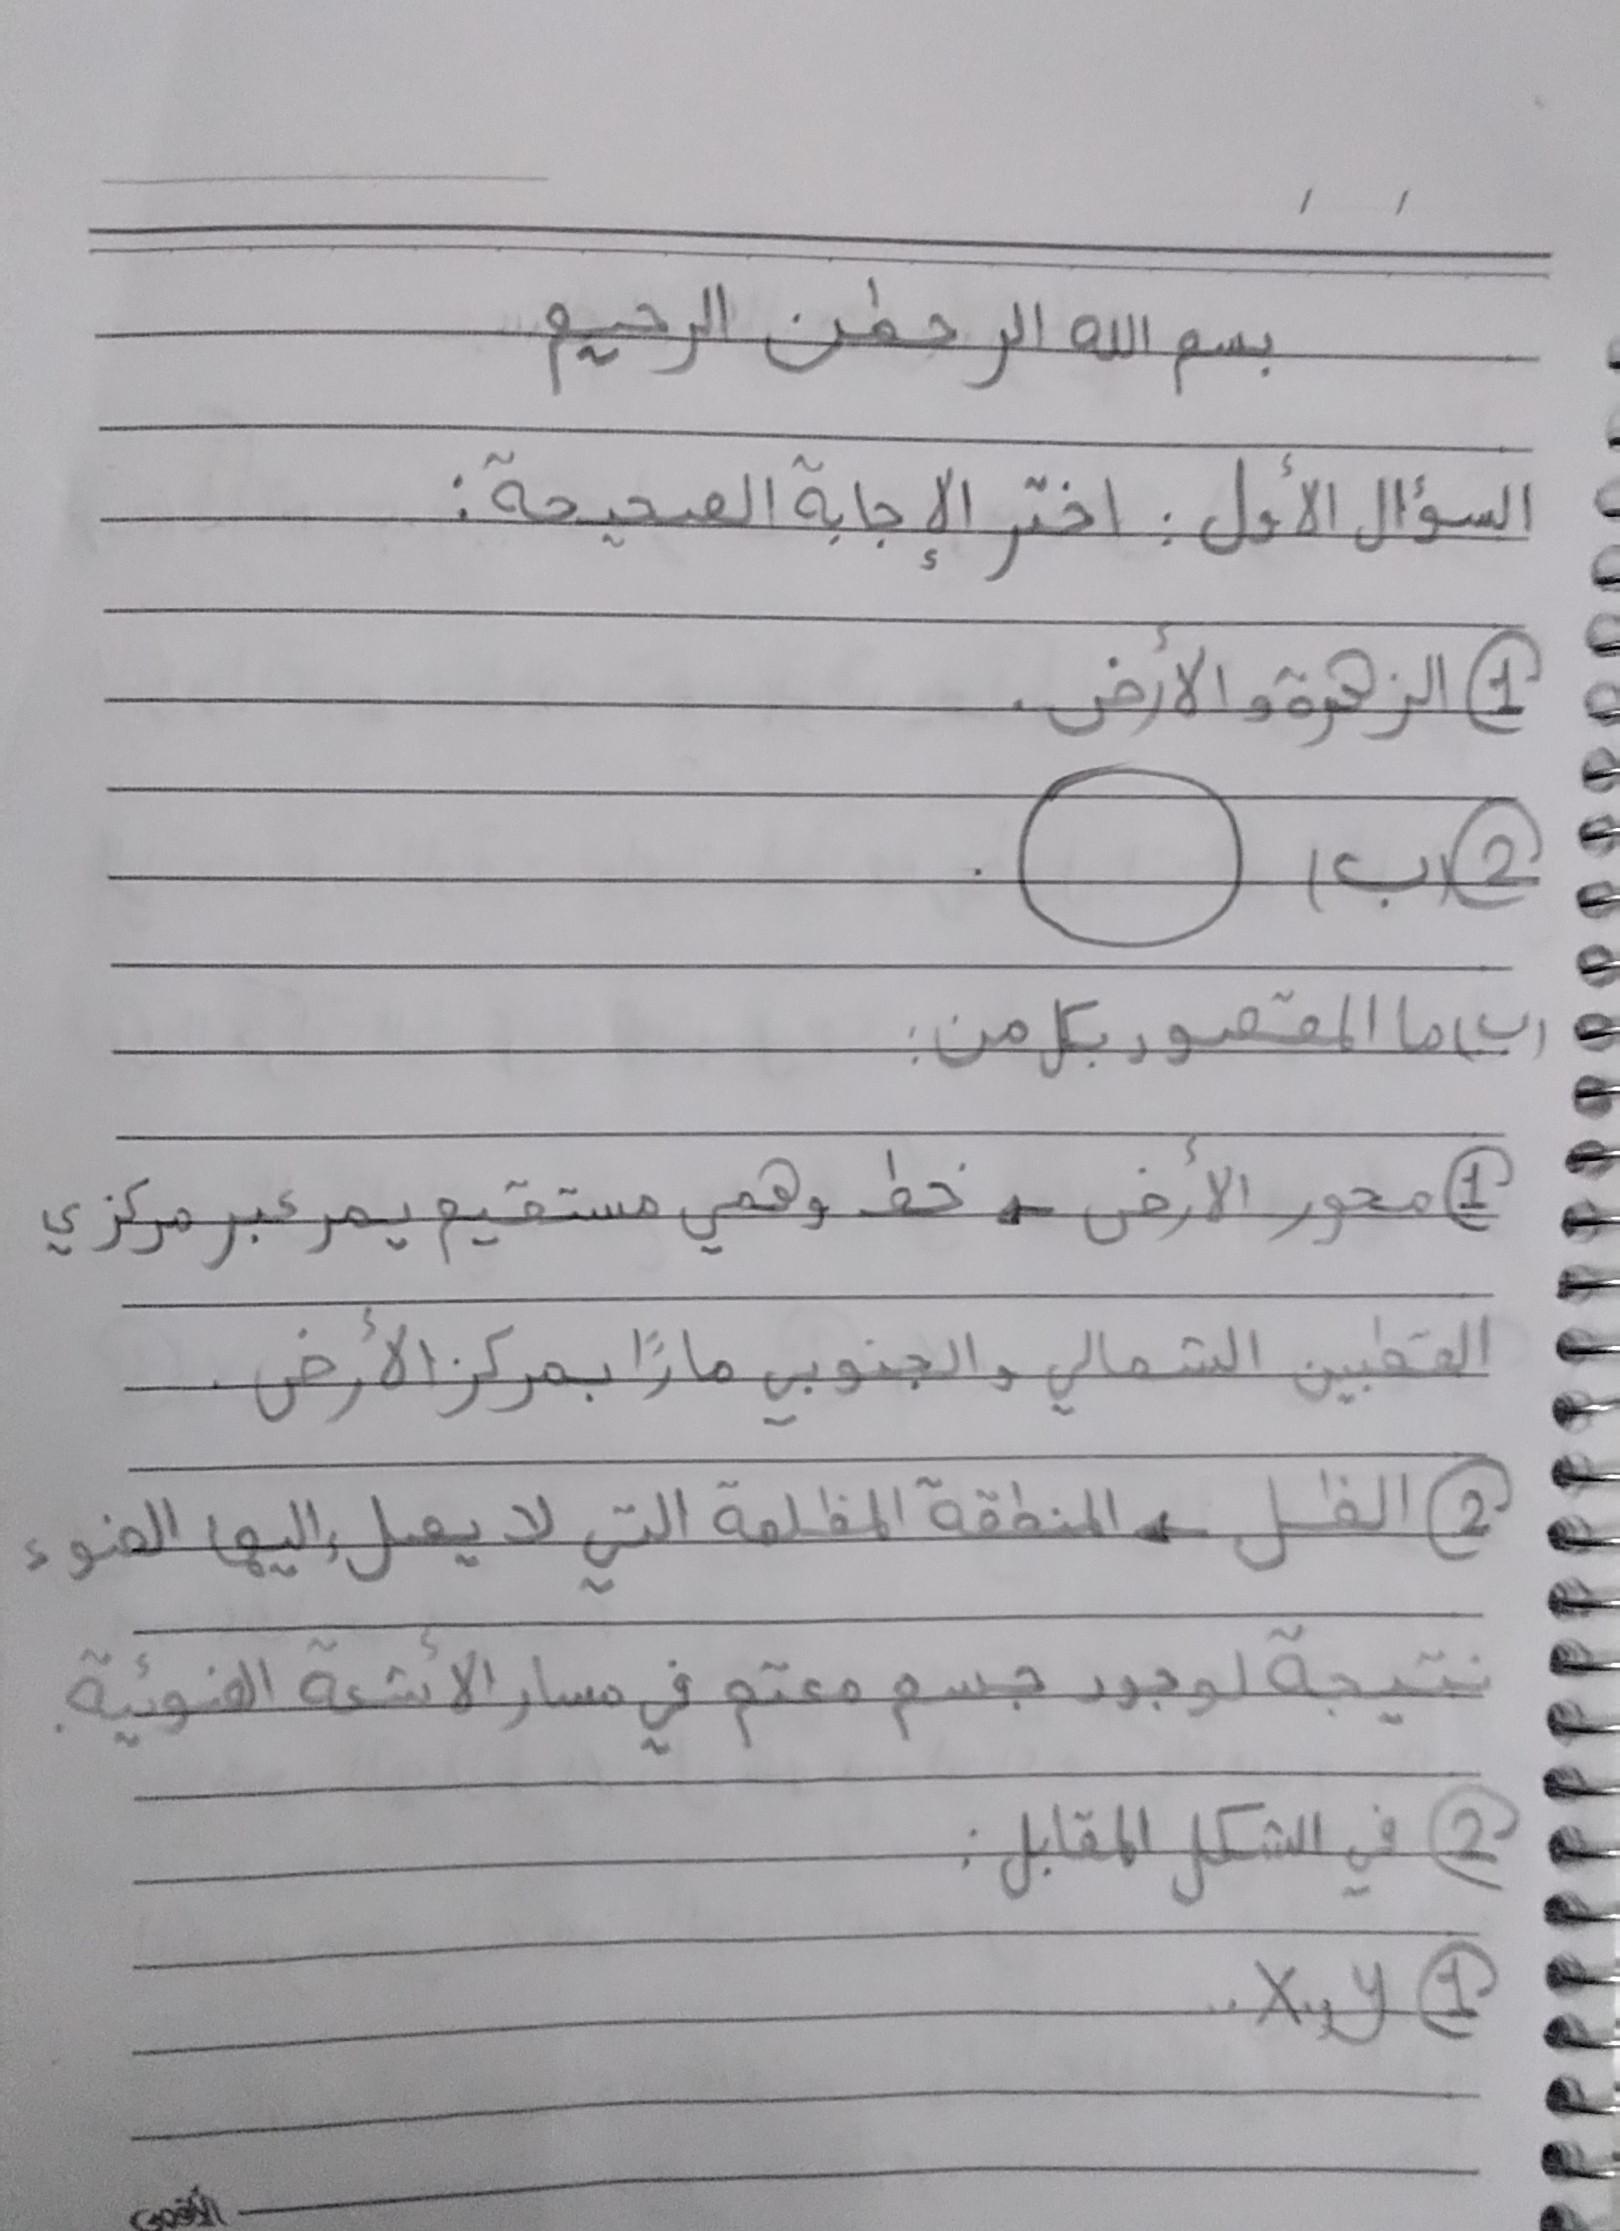 بسم الله الرحمٰن الرحيم
السؤال الأول : اختر الإجابة الصحيحة :
① الزهرة والأرض .
② (ب) .
(ب) ما المقصود بكل من :
① محور الأرض ← خط وهمي مستقيم يمر عبر مركزي
القطبين الشمالي والجنوبي مارًا بمركز الأرض .
② الظل ← المنطقة المظلمة التي لا يصل إليها الضوء
نتيجة لوجود جسم معتم في مسار الأشعة الضوئية .
② في الشكل المقابل :
① X و y ..
الأقصى